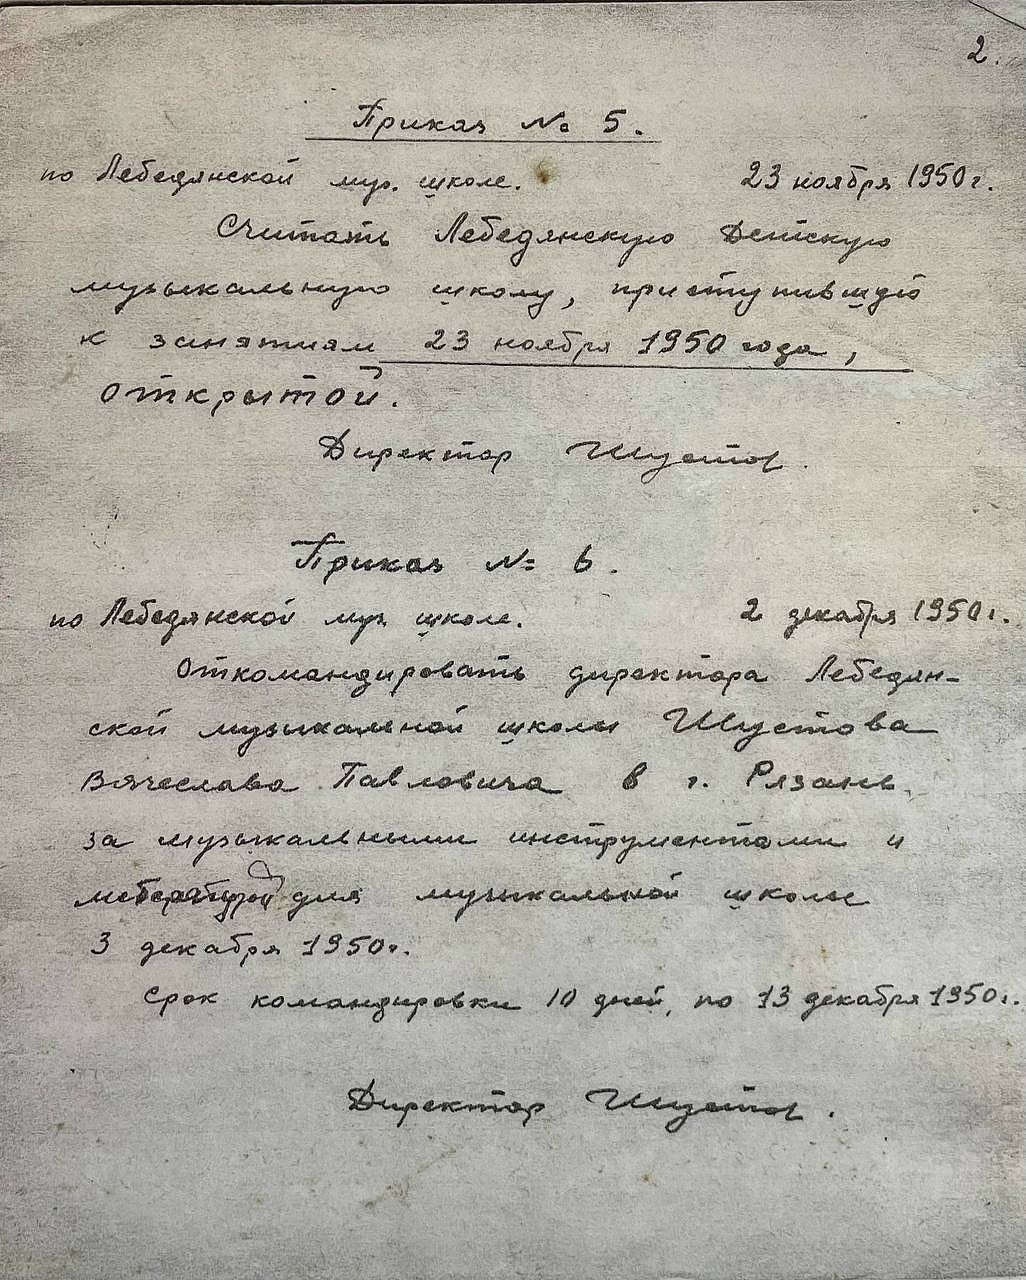 2.
Приказ № 5.
по Лебедянской муз. школе. 23 ноября 1950 г.
Считать Лебедянскую Детскую
музыкальную школу, приступившую
к занятиям 23 ноября 1950 года,
открытой.
Директор Шустов.
Приказ № 6.
по Лебедянской муз. школе. 2 декабря 1950 г.
Откомандировать директора Лебедян-
ской музыкальной школы Шустова
Вячеслава Павловича в г. Рязань
за музыкальными инструментами и
для музыкальной школы
3 декабря 1950 г.
Срок командировки 10 дней, по 13 декабря 1950 г.
Директор Шустов.